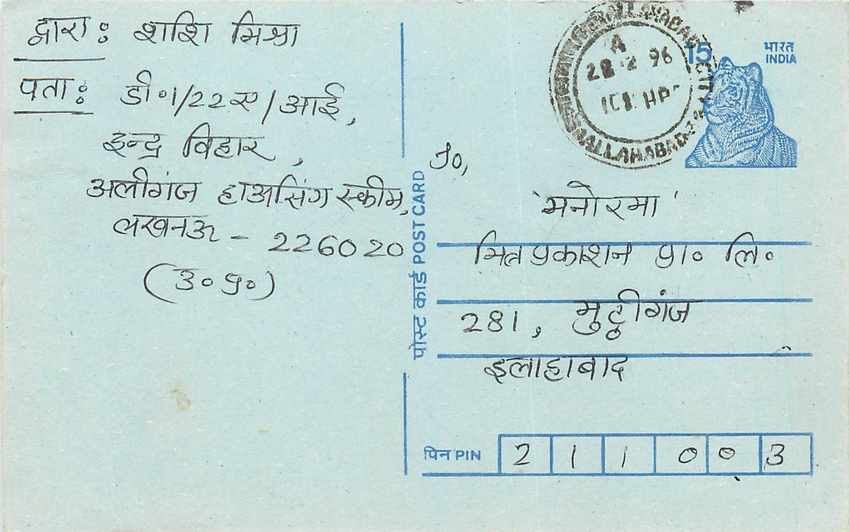 द्वारा: शशि मिश्रा
पता: डी०1/22ए/आई,
इन्द्र विहार,
अलीगंज हाउसिंग स्कीम,
लखनऊ - 226020
(उ० प्र०)
पोस्ट कार्ड POST CARD
ALLAHABAD CITY
A
28 2 96
ALLAHABAD
15
भारत
INDIA
प्र०,
'मनोरमा'
मित्र प्रकाशन प्रा० लि०
281, मुट्ठीगंज
इलाहाबाद
पिन PIN 2 1 1 0 0 3